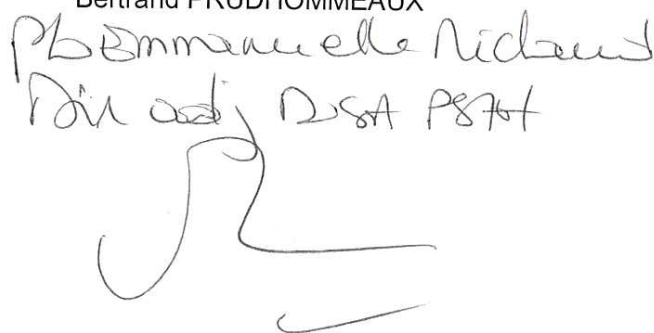 Bertrand PRUDHOMMEAUX
Emmanuelle Michaud
Dir adj DSA